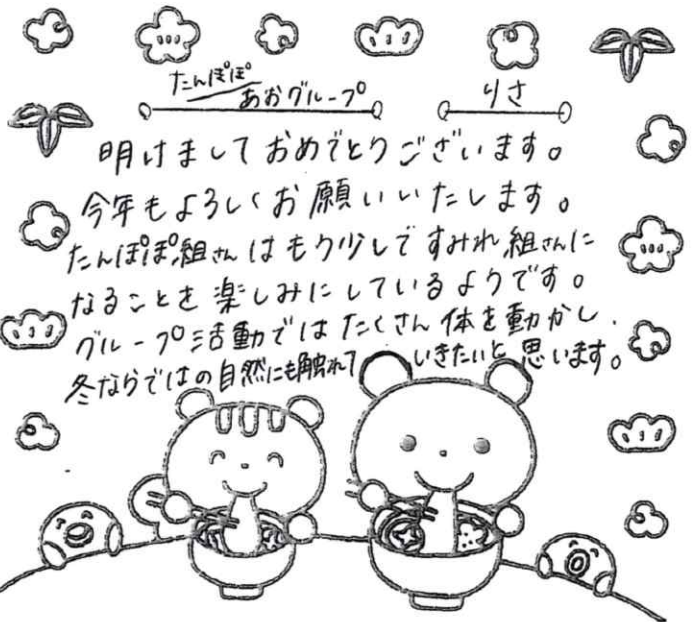 たんぽぽ
あおグループ りさ
明けましておめでとうございます。
今年もよろしくお願いいたします。
たんぽぽ組さんはもう少しですみれ組さんに
なることを楽しみにしているようです。
グループ活動ではたくさん体を動かし、
冬ならではの自然にも触れていきたいと思います。